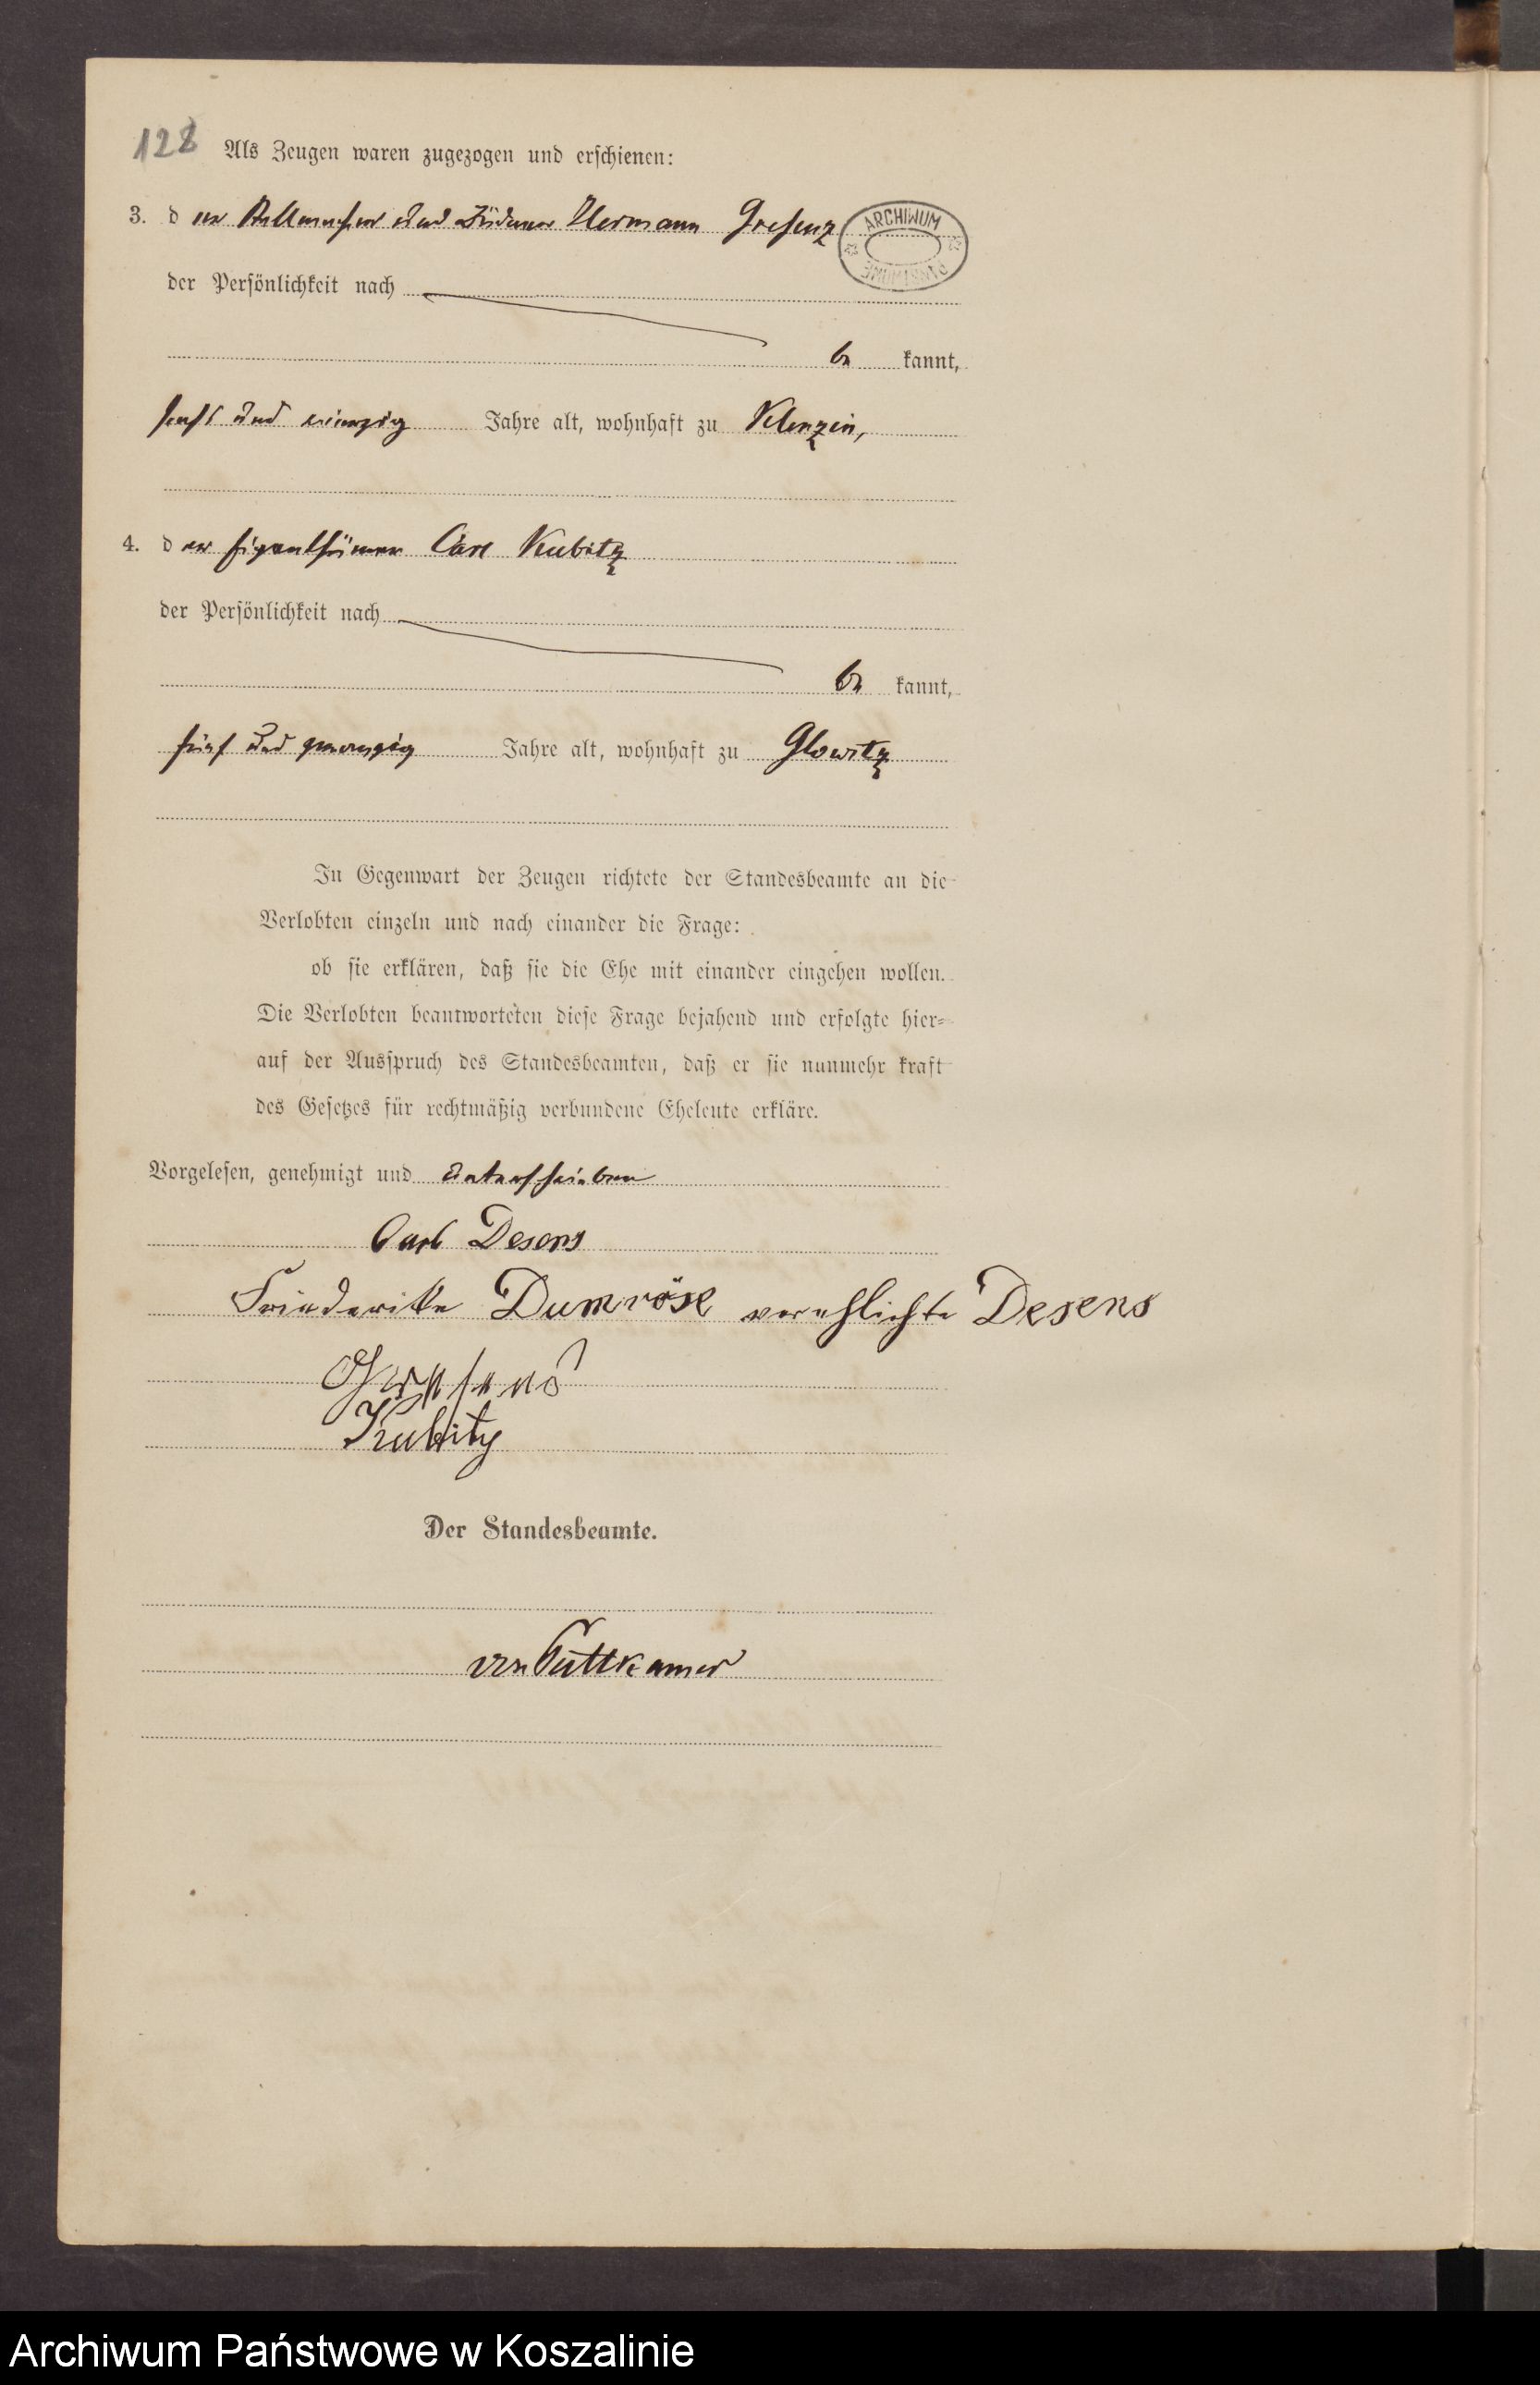 128 Als Zeugen waren zugezogen und erschienen:
ARCHIWUM
3. der Stellmacher und Büdner Hermann Gresenz
der Persönlichkeit nach
be kannt,
sechs und vierzig Jahre alt, wohnhaft zu Klenzin,
4. der Eigenthümer Carl Kubitz
der Persönlichkeit nach
be kannt,
fünf und zwanzig Jahre alt, wohnhaft zu Glowitz
In Gegenwart der Zeugen richtete der Standesbeamte an die
Verlobten einzeln und nach einander die Frage:
ob sie erklären, daß sie die Ehe mit einander eingehen wollen.
Die Verlobten beantworteten diese Frage bejahend und erfolgte hier-
auf der Ausspruch des Standesbeamten, daß er sie nunmehr kraft
des Gesetzes für rechtmäßig verbundene Eheleute erkläre.
Vorgelesen, genehmigt und unterschrieben
Carl Desens
Friederike Dumröse verehlichte Desens
Kubitz
Der Standesbeamte.
von Puttkamer
Archiwum Państwowe w Koszalinie